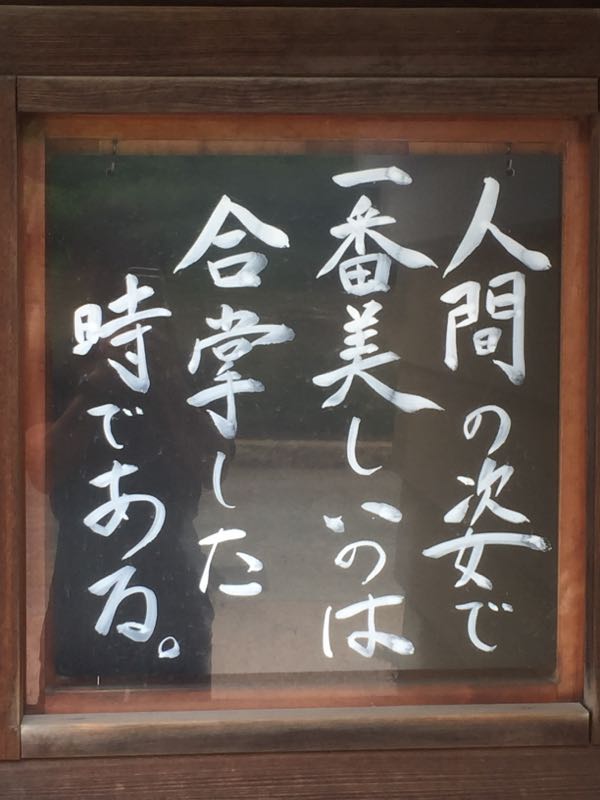 人間の姿で
一番美しいのは
合掌した
時である。